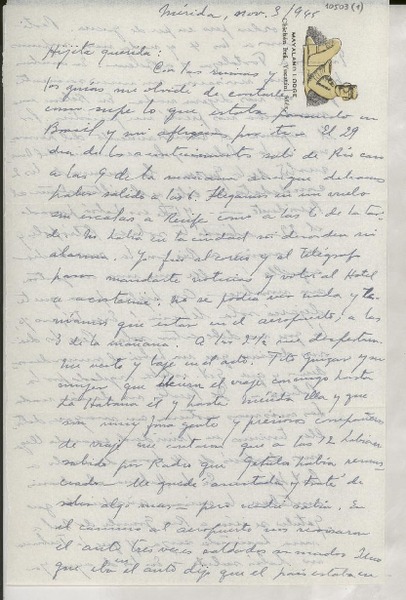 10503 (1)
Mérida, Nov. 3/945
MAYALAND LODGE
Chichén Itzá, Yucatán, México
Hijita querida:
Con las ruinas y
los guías me olvidé de contarte
como supe lo que estaba pasando en
Brasil y mi aflicción por ti. El 29
día de los acontecimientos salí de Río casi
a las 9 de la mañana aunque debíamos
haber salido a las 6. Llegamos en un vuelo
sin escalas a Recife como a las 6 de la tar
de. No había en la ciudad ni desorden ni
alarma. Yo fuí al correo y al telégrafo
para mandarte noticias y volví al Hotel
a acostarme. No se podía ver nada y te-
níamos que estar en el aeropuerto a las
3 de la mañana. A las 2 1/2 me desperta-
ron y bajé en el acto. Tito Guizar y su
mujer que hicieron el viaje conmigo hasta
La Habana él y hasta Mérida ella y que
son muy fina gente y preciosos compañeros
de viaje me contaron que a las 12 habían
sabido por Radio que Getulio había renun-
ciado. Me quedé asustada y traté de
saber algo mas pero nadie sabía. En
el camino al aeropuerto nos revisaron
el auto tres veces soldados armados. Uno
que iba en el auto dijo que el país estaba en